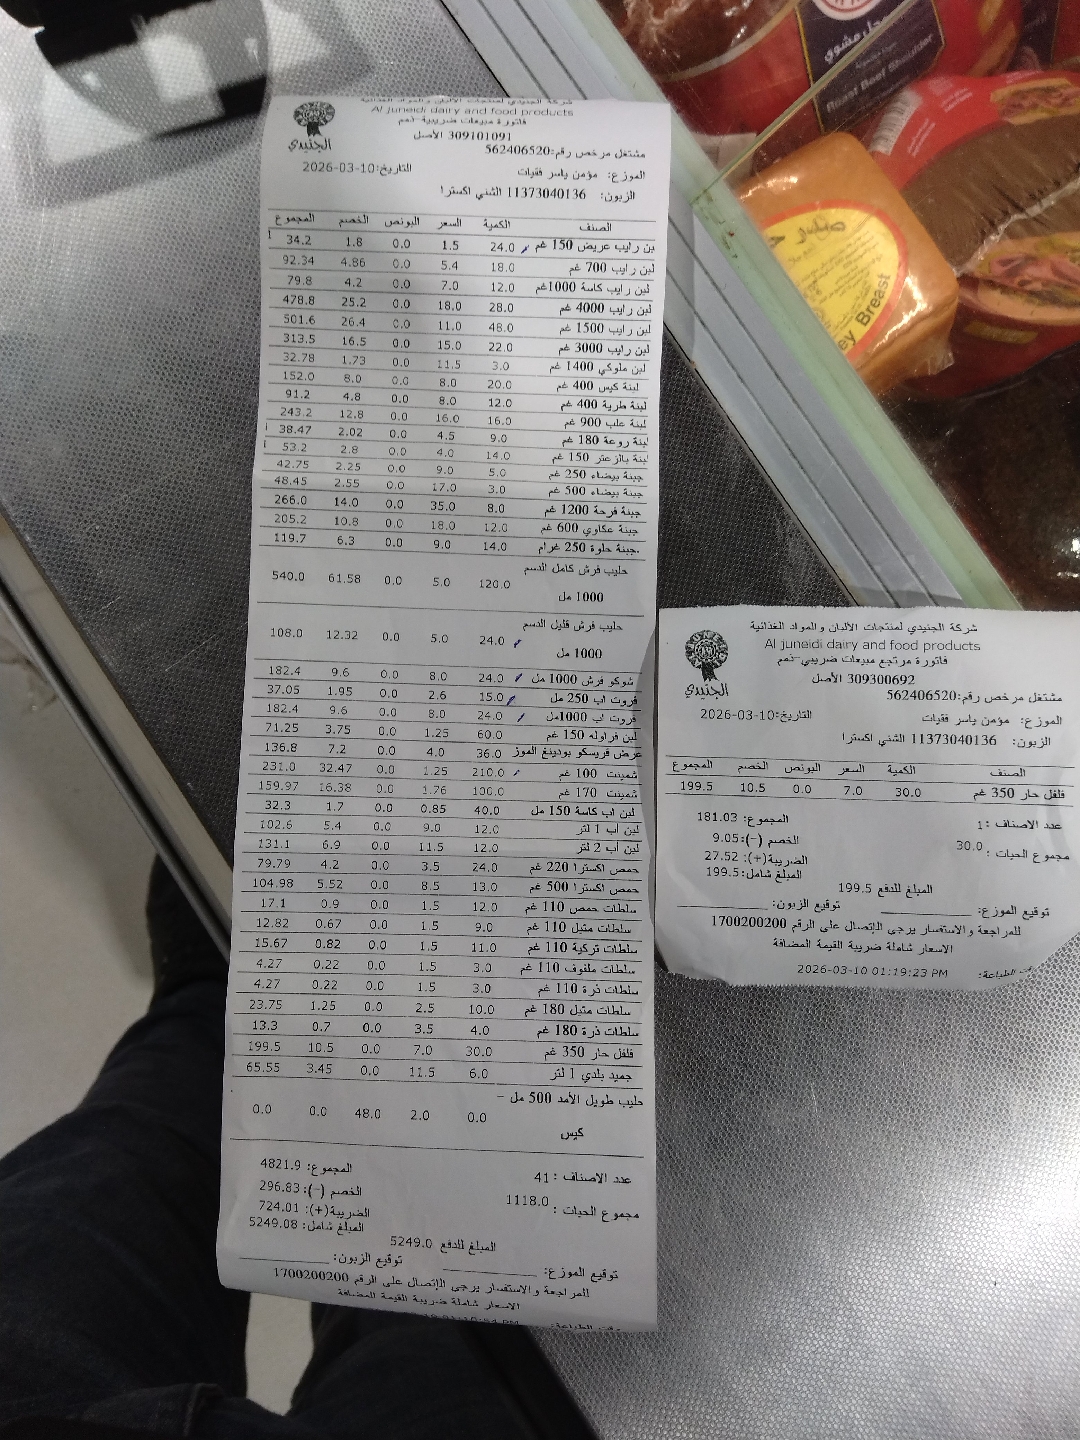 شركة الجنيدي لمنتجات الألبان والمواد الغذائية
Al juneidi dairy and food products
فاتورة مبيعات ضريبية-ذمم
309101091 الأصل
مشتغل مرخص رقم:562406520
الموزع: مؤمن ياسر فقيات التاريخ:10-03-2026
الزبون: 11373040136 الشني اكسترا
الجنيدي
الصنف الكمية السعر البونص الخصم المجموع
بن رايب عريض 150 غم 24.0 1.5 0.0 1.8 34.2
لبن رايب 700 غم 18.0 5.4 0.0 4.86 92.34
لبن رايب كاسة 1000غم 12.0 7.0 0.0 4.2 79.8
لبن رايب 4000 غم 28.0 18.0 0.0 25.2 478.8
لبن رايب 1500 غم 48.0 11.0 0.0 26.4 501.6
لبن رايب 3000 غم 22.0 15.0 0.0 16.5 313.5
لبن ملوكي 1400 غم 3.0 11.5 0.0 1.73 32.78
لبنة كيس 400 غم 20.0 8.0 0.0 8.0 152.0
لبنة طرية 400 غم 12.0 8.0 0.0 4.8 91.2
لبنة علب 900 غم 16.0 16.0 0.0 12.8 243.2
لبنة روعة 180 غم 9.0 4.5 0.0 2.02 38.47
لبنة بالزعتر 150 غم 14.0 4.0 0.0 2.8 53.2
جبنة بيضاء 250 غم 5.0 9.0 0.0 2.25 42.75
جبنة بيضاء 500 غم 3.0 17.0 0.0 2.55 48.45
جبنة فرحة 1200 غم 8.0 35.0 0.0 14.0 266.0
جبنة عكاوي 600 غم 12.0 18.0 0.0 10.8 205.2
جبنة حلوة 250 غرام. 14.0 9.0 0.0 6.3 119.7
حليب فرش كامل الدسم
1000 مل 120.0 5.0 0.0 61.58 540.0
حليب فرش قليل الدسم
1000 مل 24.0 5.0 0.0 12.32 108.0
شوكو فرش 1000 مل 24.0 8.0 0.0 9.6 182.4
فروت اب 250 مل 15.0 2.6 0.0 1.95 37.05
فروت اب 1000مل 24.0 8.0 0.0 9.6 182.4
لبن فراوله 150 غم 60.0 1.25 0.0 3.75 71.25
عرض فريسكو بودينغ الموز 36.0 4.0 0.0 7.2 136.8
شمينت 100 غم 210.0 1.25 0.0 32.47 231.0
شمينت 170 غم 100.0 1.76 0.0 16.38 159.97
لبن اب كاسة 150 مل 40.0 0.85 0.0 1.7 32.3
لبن اب 1 لتر 12.0 9.0 0.0 5.4 102.6
لبن اب 2 لتر 12.0 11.5 0.0 6.9 131.1
حمص اكسترا 220 غم 24.0 3.5 0.0 4.2 79.79
حمص اكسترا 500 غم 13.0 8.5 0.0 5.52 104.98
سلطات حمص 110 غم 12.0 1.5 0.0 0.9 17.1
سلطات متبل 110 غم 9.0 1.5 0.0 0.67 12.82
سلطات تركية 110 غم 11.0 1.5 0.0 0.82 15.67
سلطات ملفوف 110 غم 3.0 1.5 0.0 0.22 4.27
سلطات ذرة 110 غم 3.0 1.5 0.0 0.22 4.27
سلطات متبل 180 غم 10.0 2.5 0.0 1.25 23.75
سلطات ذرة 180 غم 4.0 3.5 0.0 0.7 13.3
فلفل حار 350 غم 30.0 7.0 0.0 10.5 199.5
جميد بلدي 1 لتر 6.0 11.5 0.0 3.45 65.55
حليب طويل الأمد 500 مل -
كيس 0.0 2.0 48.0 0.0 0.0
عدد الاصناف : 41 المجموع: 4821.9
مجموع الحبات : 1118.0 الخصم (-): 296.83
الضريبة(+): 724.01
المبلغ شامل: 5249.08
المبلغ للدفع 5249.0
توقيع الموزع: توقيع الزبون:
للمراجعة والاستفسار يرجى الإتصال على الرقم 1700200200
الاسعار شاملة ضريبة القيمة المضافة
شركة الجنيدي لمنتجات الألبان والمواد الغذائية
Al juneidi dairy and food products
فاتورة مرتجع مبيعات ضريبي-ذمم
309300692 الأصل
مشتغل مرخص رقم:562406520
الموزع: مؤمن ياسر فقيات التاريخ:10-03-2026
الزبون: 11373040136 الشني اكسترا
الجنيدي
الصنف الكمية السعر البونص الخصم المجموع
فلفل حار 350 غم 30.0 7.0 0.0 10.5 199.5
عدد الاصناف : 1 المجموع: 181.03
مجموع الحبات : 30.0 الخصم (-):9.05
الضريبة(+): 27.52
المبلغ شامل: 199.5
المبلغ للدفع 199.5
توقيع الموزع: توقيع الزبون:
للمراجعة والاستفسار يرجى الإتصال على الرقم 1700200200
الاسعار شاملة ضريبة القيمة المضافة
2026-03-10 01:19:23 PM
مشوي
Roast Beef Shoulder
Breast